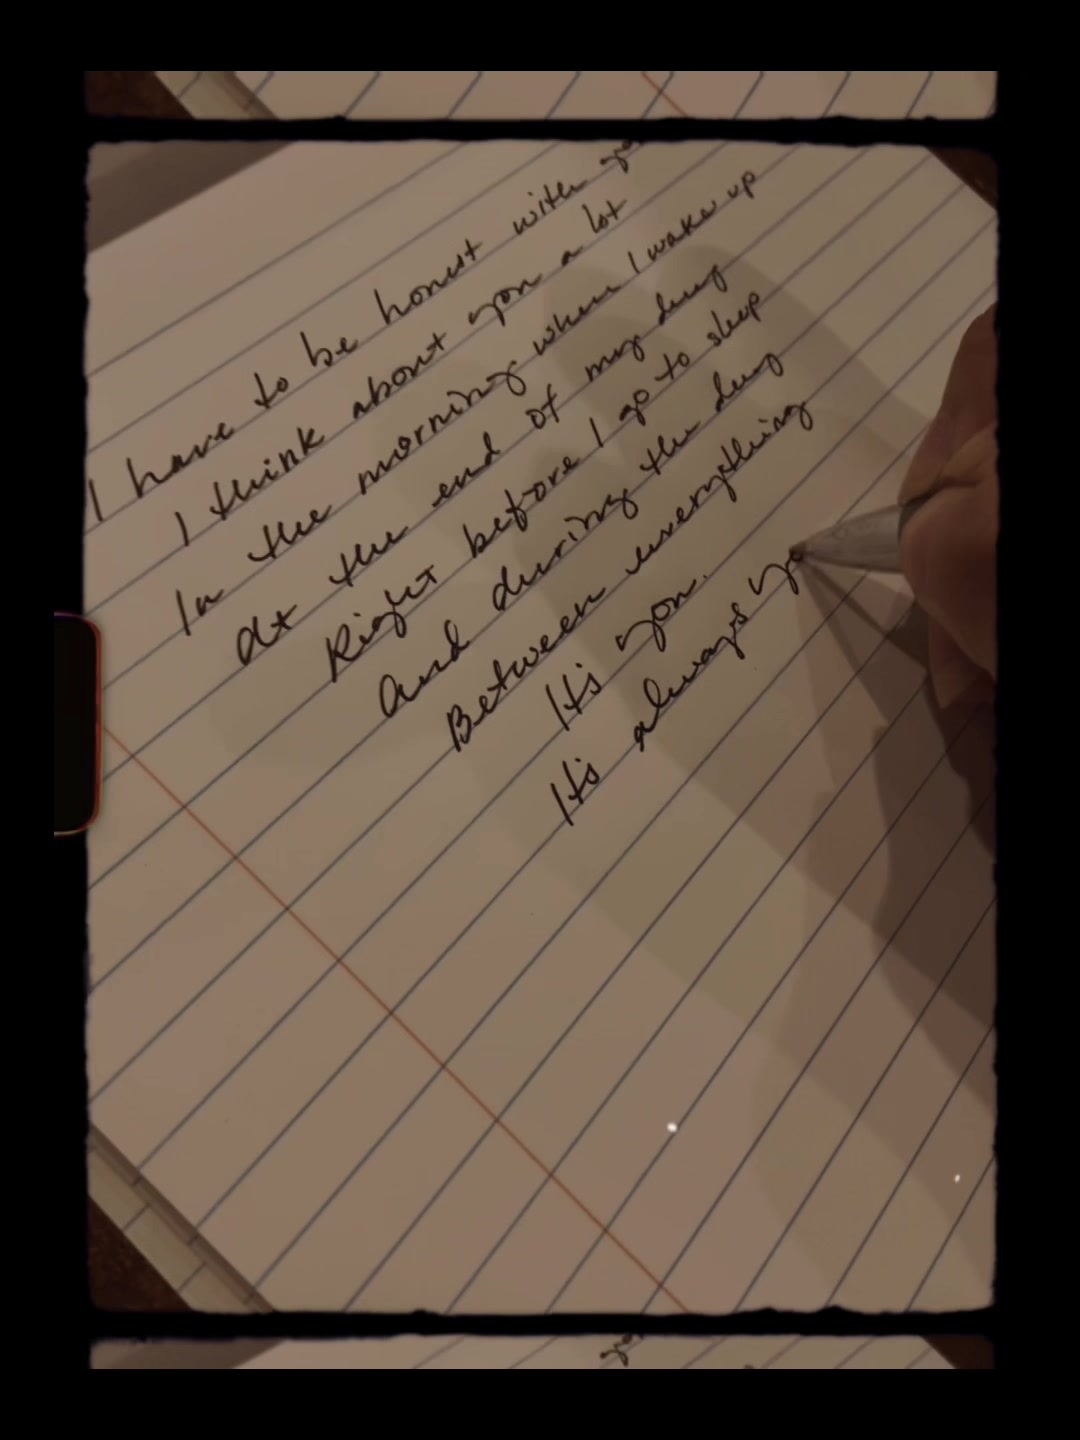 I have to be honest with yo
I think about you a lot
In the morning when I wake up
At the end of my day
Right before I go to sleep
And during the day
Between everything
It's you.
It's always yo